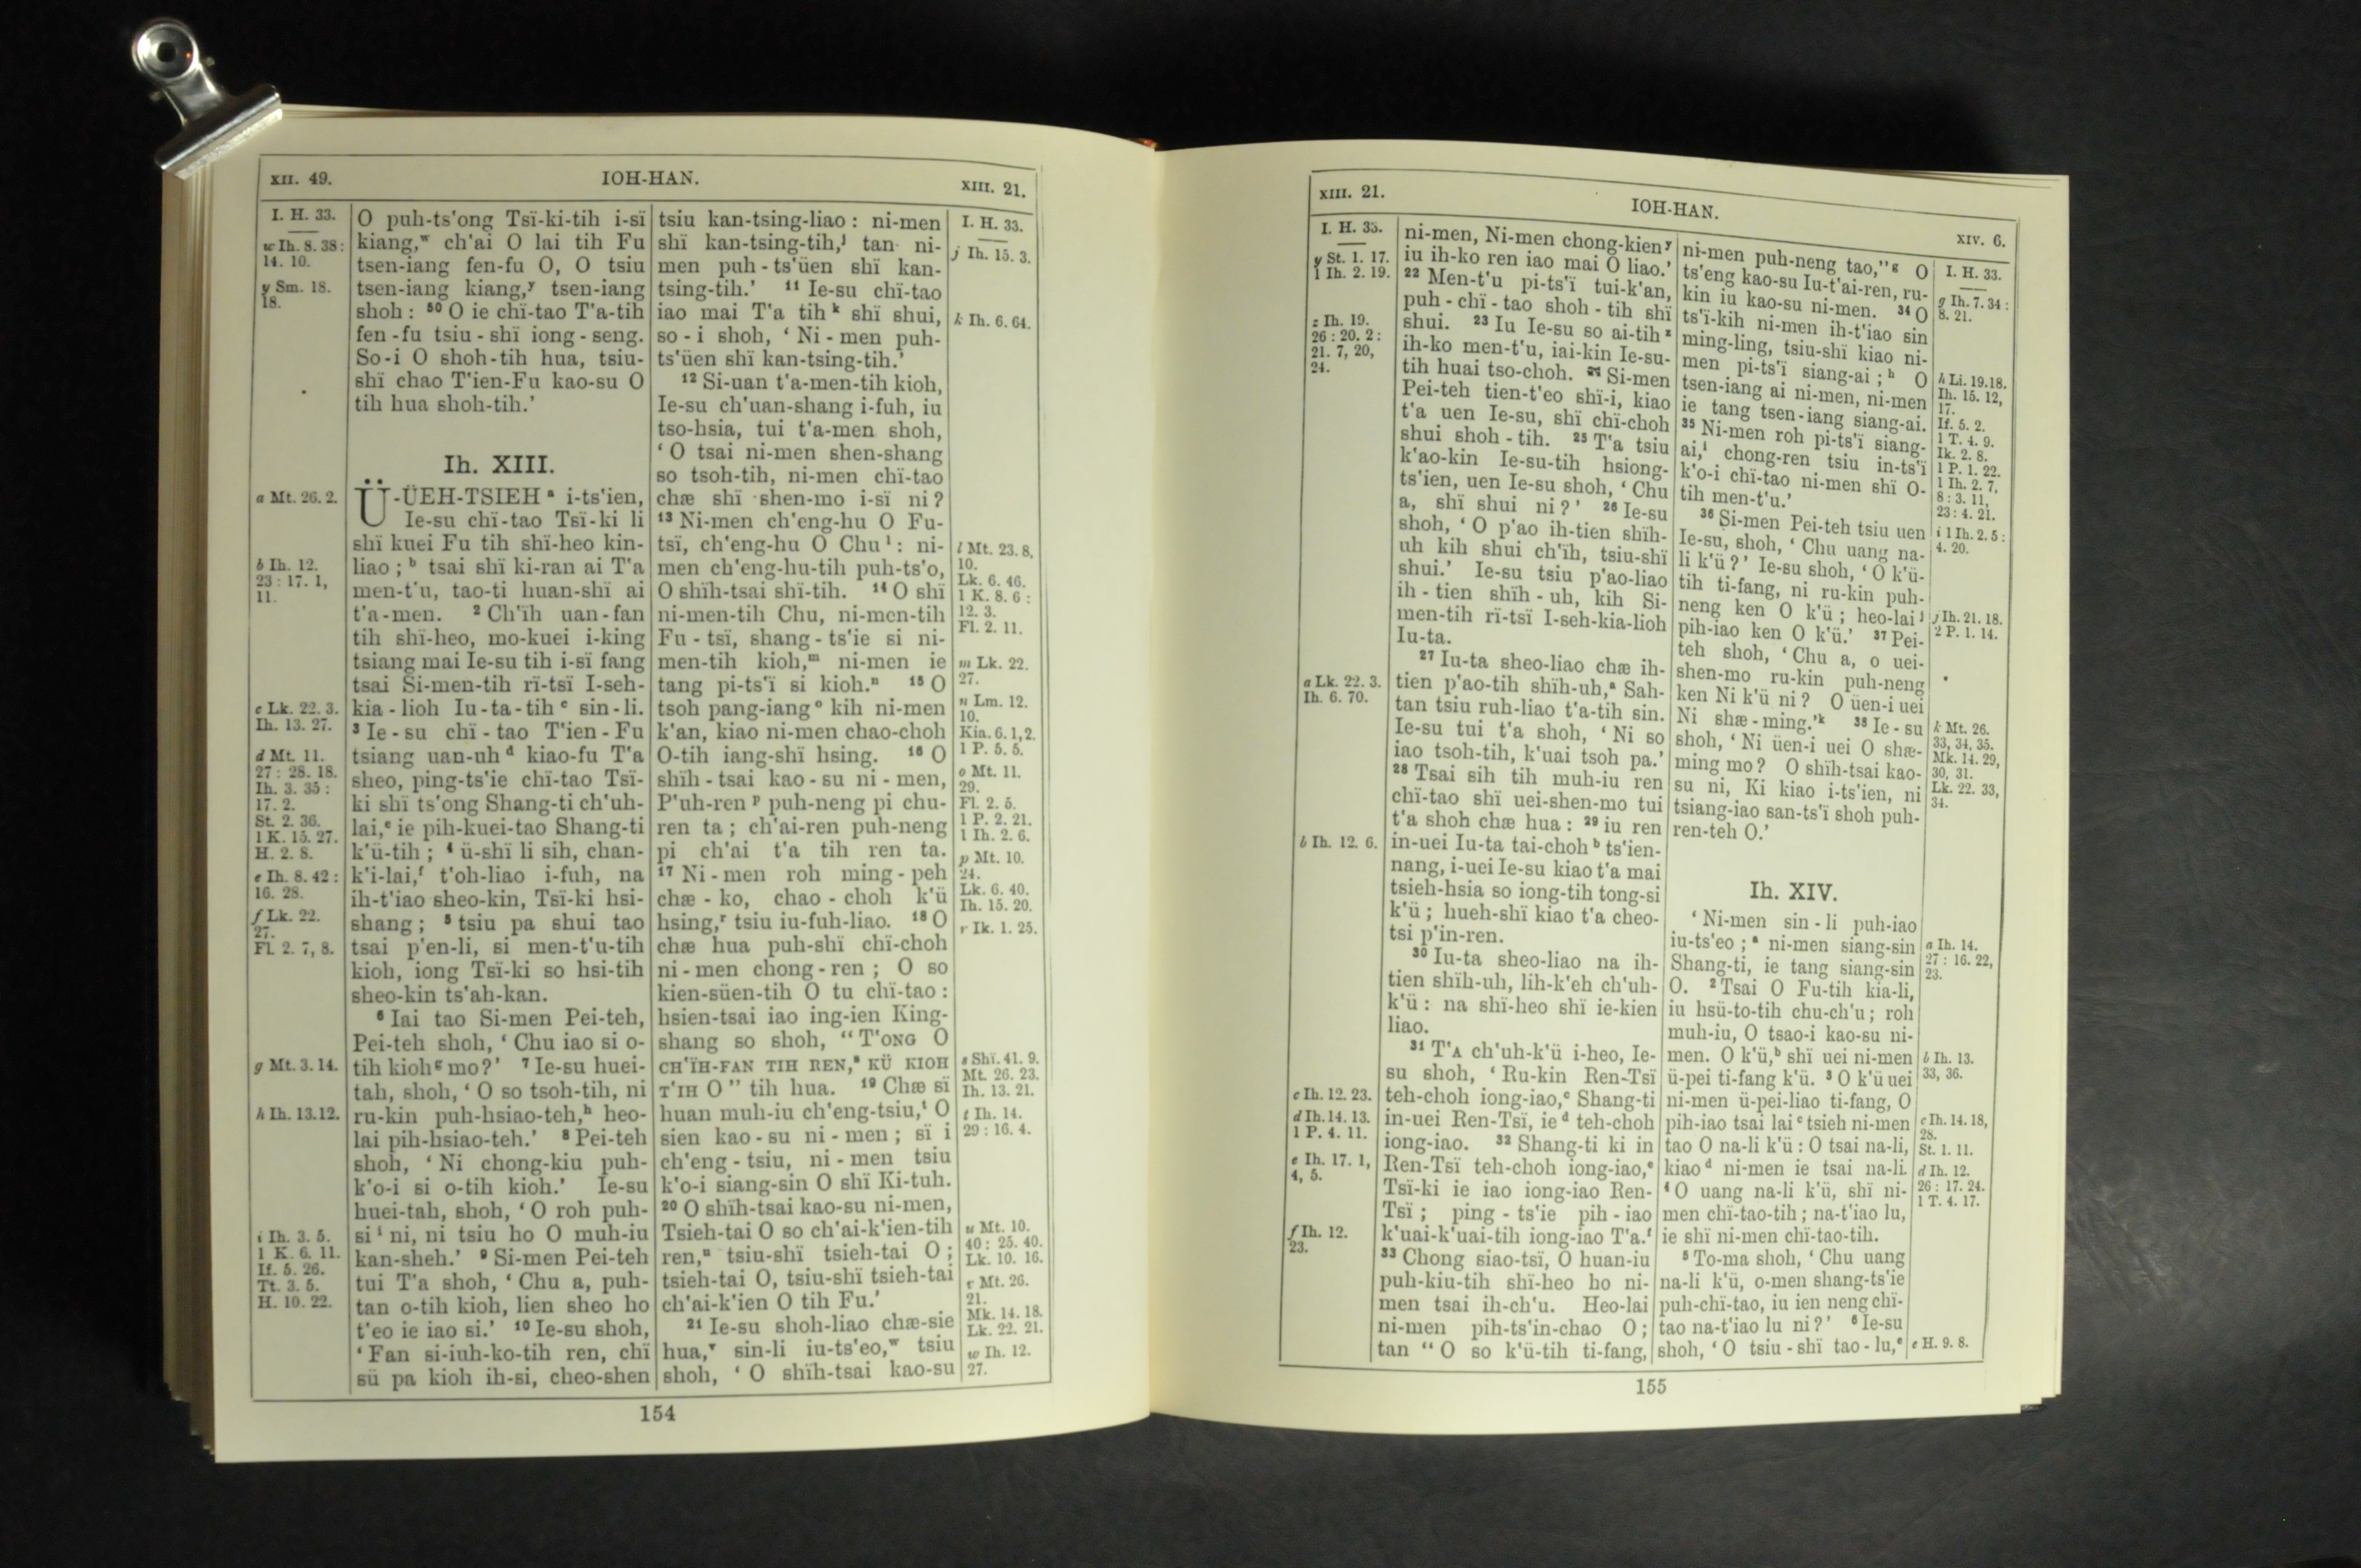 XII. 49.
IOH-HAN.
XIII. 21.
I. H. 33.
w Ih. 8. 38:
14. 10.
y Sm. 18.
18.
a Mt. 26. 2.
b Ih. 12.
23 : 17. 1,
11.
c Lk. 22. 3.
Ih. 13. 27.
d Mt. 11.
27 : 28. 18.
Ih. 3. 35 :
17. 2.
St. 2. 36.
1 K. 15. 27.
H. 2. 8.
e Ih. 8. 42 :
16. 28.
f Lk. 22.
27.
Fl. 2. 7, 8.
g Mt. 3. 14.
h Ih. 13. 12.
i Ih. 3. 5.
1 K. 6. 11.
If. 5. 26.
Tt. 3. 5.
H. 10. 22.
O puh-ts'ong Tsï-ki-tih i-sï
kiang,ʷ ch'ai O lai tih Fu
tsen-iang fen-fu O, O tsiu
tsen-iang kiang,ʸ tsen-iang
shoh : ⁵⁰ O ie chï-tao T'a-tih
fen-fu tsiu-shï iong-seng.
So-i O shoh-tih hua, tsiu-
shï chao T'ien-Fu kao-su O
tih hua shoh-tih.'
Ih. XIII.
Ü-ÜEH-TSIEH ᵃ i-ts'ien,
Ie-su chï-tao Tsï-ki li
shï kuei Fu tih shï-heo kin-
liao ; ᵇ tsai shï ki-ran ai T'a
men-t'u, tao-ti huan-shï ai
t'a-men. ² Ch'ïh uan-fan
tih shï-heo, mo-kuei i-king
tsiang mai Ie-su tih i-sï fang
tsai Si-men-tih rï-tsï I-seh-
kia-lioh Iu-ta-tih ᶜ sin-li.
³ Ie-su chï-tao T'ien-Fu
tsiang uan-uh ᵈ kiao-fu T'a
sheo, ping-ts'ie chï-tao Tsï-
ki shï ts'ong Shang-ti ch'uh-
lai,ᵉ ie pih-kuei-tao Shang-ti
k'ü-tih ; ⁴ ü-shï li sih, chan-
k'i-lai,ᶠ t'oh-liao i-fuh, na
ih-t'iao sheo-kin, Tsï-ki hsi-
shang ; ⁵ tsiu pa shui tao
tsai p'en-li, si men-t'u-tih
kioh, iong Tsï-ki so hsi-tih
sheo-kin ts'ah-kan.
⁶ Iai tao Si-men Pei-teh,
Pei-teh shoh, ‘ Chu iao si o-
tih kioh ᵍ mo?’ ⁷ Ie-su huei-
tah, shoh, ‘ O so tsoh-tih, ni
ru-kin puh-hsiao-teh,ʰ heo-
lai pih-hsiao-teh.’ ⁸ Pei-teh
shoh, ‘ Ni chong-kiu puh-
k'o-i si o-tih kioh.’ Ie-su
huei-tah, shoh, ‘ O roh puh-
si ⁱ ni, ni tsiu ho O muh-iu
kan-sheh.’ ⁹ Si-men Pei-teh
tui T'a shoh, ‘ Chu a, puh-
tan o-tih kioh, lien sheo ho
t'eo ie iao si.’ ¹⁰ Ie-su shoh,
‘ Fan si-iuh-ko-tih ren, chï
sü pa kioh ih-si, cheo-shen
tsiu kan-tsing-liao : ni-men
shï kan-tsing-tih,ʲ tan ni-
men puh-ts'üen shï kan-
tsing-tih.’ ¹¹ Ie-su chï-tao
iao mai T'a tih ᵏ shï shui,
so-i shoh, ‘ Ni-men puh-
ts'üen shï kan-tsing-tih.’
¹² Si-uan t'a-men-tih kioh,
Ie-su ch'uan-shang i-fuh, iu
tso-hsia, tui t'a-men shoh,
‘ O tsai ni-men shen-shang
so tsoh-tih, ni-men chï-tao
chæ shï shen-mo i-sï ni?
¹³ Ni-men ch'eng-hu O Fu-
tsï, ch'eng-hu O Chu ˡ : ni-
men ch'eng-hu-tih puh-ts'o,
O shïh-tsai shï-tih. ¹⁴ O shï
ni-men-tih Chu, ni-men-tih
Fu-tsï, shang-ts'ie si ni-
men-tih kioh,ᵐ ni-men ie
tang pi-ts'ï si kioh.ⁿ ¹⁵ O
tsoh pang-iang ᵒ kih ni-men
k'an, kiao ni-men chao-choh
O-tih iang-shï hsing. ¹⁶ O
shïh-tsai kao-su ni-men,
P'uh-ren ᵖ puh-neng pi chu-
ren ta ; ch'ai-ren puh-neng
pi ch'ai t'a tih ren ta.
¹⁷ Ni-men roh ming-peh
chæ-ko, chao-choh k'ü
hsing,ʳ tsiu iu-fuh-liao. ¹⁸ O
chæ hua puh-shï chï-choh
ni-men chong-ren ; O so
kien-süen-tih O tu chï-tao :
hsien-tsai iao ing-ien King-
shang so shoh, “ T'ONG O
CH'ÏH-FAN TIH REN,ˢ KÜ KIOH
T'IH O ” tih hua. ¹⁹ Chæ sï
huan muh-iu ch'eng-tsiu,ᵗ O
sien kao-su ni-men ; sï i
ch'eng-tsiu, ni-men tsiu
k'o-i siang-sin O shï Ki-tuh.
²⁰ O shïh-tsai kao-su ni-men,
Tsieh-tai O so ch'ai-k'ien-tih
ren,ᵘ tsiu-shï tsieh-tai O ;
tsieh-tai O, tsiu-shï tsieh-tai
ch'ai-k'ien O tih Fu.’
²¹ Ie-su shoh-liao chæ-sie
hua,ᵛ sin-li iu-ts'eo,ʷ tsiu
shoh, ‘ O shïh-tsai kao-su
I. H. 33.
j Ih. 15. 3.
k Ih. 6. 64.
l Mt. 23. 8,
10.
Lk. 6. 46.
1 K. 8. 6 :
12. 3.
Fl. 2. 11.
m Lk. 22.
27.
n Lm. 12.
10.
Kia. 6. 1, 2.
1 P. 5. 5.
o Mt. 11.
29.
Fl. 2. 5.
1 P. 2. 21.
1 Ih. 2. 6.
p Mt. 10.
24.
Lk. 6. 40.
Ih. 15. 20.
r Ik. 1. 25.
s Shï. 41. 9.
Mt. 26. 23.
Ih. 13. 21.
t Ih. 14.
29 : 16. 4.
u Mt. 10.
40 : 25. 40.
Lk. 10. 16.
v Mt. 26.
21.
Mk. 14. 18.
Lk. 22. 21.
w Ih. 12.
27.
154
XIII. 21.
IOH-HAN.
XIV. 6.
I. H. 33.
y St. 1. 17.
1 Ih. 2. 19.
z Ih. 19.
26 : 20. 2 :
21. 7, 20,
24.
a Lk. 22. 3.
Ih. 6. 70.
b Ih. 12. 6.
c Ih. 12. 23.
d Ih. 14. 13.
1 P. 4. 11.
e Ih. 17. 1,
4, 5.
f Ih. 12.
23.
ni-men, Ni-men chong-kien ʸ
iu ih-ko ren iao mai O liao.’
²² Men-t'u pi-ts'ï tui-k'an,
puh-chï-tao shoh-tih shï
shui. ²³ Iu Ie-su so ai-tih ᶻ
ih-ko men-t'u, iai-kin Ie-su-
tih huai tso-choh. ²⁴ Si-men
Pei-teh tien-t'eo shï-i, kiao
t'a uen Ie-su, shï chï-choh
shui shoh-tih. ²⁵ T'a tsiu
k'ao-kin Ie-su-tih hsiong-
ts'ien, uen Ie-su shoh, ‘ Chu
a, shï shui ni?’ ²⁶ Ie-su
shoh, ‘ O p'ao ih-tien shïh-
uh kih shui ch'ïh, tsiu-shï
shui.’ Ie-su tsiu p'ao-liao
ih-tien shïh-uh, kih Si-
men-tih rï-tsï I-seh-kia-lioh
Iu-ta.
²⁷ Iu-ta sheo-liao chæ ih-
tien p'ao-tih shïh-uh,ᵃ Sah-
tan tsiu ruh-liao t'a-tih sin.
Ie-su tui t'a shoh, ‘ Ni so
iao tsoh-tih, k'uai tsoh pa.’
²⁸ Tsai sih tih muh-iu ren
chï-tao shï uei-shen-mo tui
t'a shoh chæ hua : ²⁹ iu ren
in-uei Iu-ta tai-choh ᵇ ts'ien-
nang, i-uei Ie-su kiao t'a mai
tsieh-hsia so iong-tih tong-si
k'ü ; hueh-shï kiao t'a cheo-
tsi p'in-ren.
³⁰ Iu-ta sheo-liao na ih-
tien shïh-uh, lih-k'eh ch'uh-
k'ü : na shï-heo shï ie-kien
liao.
³¹ T'A ch'uh-k'ü i-heo, Ie-
su shoh, ‘ Ru-kin Ren-Tsï
teh-choh iong-iao,ᶜ Shang-ti
in-uei Ren-Tsï, ie ᵈ teh-choh
iong-iao. ³² Shang-ti ki in
Ren-Tsï teh-choh iong-iao,ᵉ
Tsï-ki ie iao iong-iao Ren-
Tsï ; ping-ts'ie pih-iao
k'uai-k'uai-tih iong-iao T'a.ᶠ
³³ Chong siao-tsï, O huan-iu
puh-kiu-tih shï-heo ho ni-
men tsai ih-ch'u. Heo-lai
ni-men pih-ts'in-chao O ;
tan “ O so k'ü-tih ti-fang,
ni-men puh-neng tao,” ᵍ O
ts'eng kao-su Iu-t'ai-ren, ru-
kin iu kao-su ni-men. ³⁴ O
ts'ï-kih ni-men ih-t'iao sin
ming-ling, tsiu-shï kiao ni-
men pi-ts'ï siang-ai ; ʰ O
tsen-iang ai ni-men, ni-men
ie tang tsen-iang siang-ai.
³⁵ Ni-men roh pi-ts'ï siang-
ai,ⁱ chong-ren tsiu in-ts'ï
k'o-i chï-tao ni-men shï O-
tih men-t'u.’
³⁶ Si-men Pei-teh tsiu uen
Ie-su, shoh, ‘ Chu uang na-
li k'ü?’ Ie-su shoh, ‘ O k'ü-
tih ti-fang, ni ru-kin puh-
neng ken O k'ü ; heo-lai ʲ
pih-iao ken O k'ü.’ ³⁷ Pei-
teh shoh, ‘ Chu a, o uei-
shen-mo ru-kin puh-neng
ken Ni k'ü ni? O üen-i uei
Ni shæ-ming.’ᵏ ³⁸ Ie-su
shoh, ‘ Ni üen-i uei O shæ-
ming mo? O shïh-tsai kao-
su ni, Ki kiao i-ts'ien, ni
tsiang-iao san-ts'ï shoh puh-
ren-teh O.’
Ih. XIV.
‘ Ni-men sin-li puh-iao
iu-ts'eo ; ᵃ ni-men siang-sin
Shang-ti, ie tang siang-sin
O. ² Tsai O Fu-tih kia-li,
iu hsü-to-tih chu-ch'u ; roh
muh-iu, O tsao-i kao-su ni-
men. O k'ü,ᵇ shï uei ni-men
ü-pei ti-fang k'ü. ³ O k'ü uei
ni-men ü-pei-liao ti-fang, O
pih-iao tsai lai ᶜ tsieh ni-men
tao O na-li k'ü : O tsai na-li,
kiao ᵈ ni-men ie tsai na-li.
⁴ O uang na-li k'ü, shï ni-
men chï-tao-tih ; na-t'iao lu,
ie shï ni-men chï-tao-tih.
⁵ To-ma shoh, ‘ Chu uang
na-li k'ü, o-men shang-ts'ie
puh-chï-tao, iu ien neng chï-
tao na-t'iao lu ni?’ ⁶ Ie-su
shoh, ‘ O tsiu-shï tao-lu,ᵉ
I. H. 33.
g Ih. 7. 34 :
8. 21.
h Li. 19. 18.
Ih. 15. 12,
17.
If. 5. 2.
1 T. 4. 9.
Ik. 2. 8.
1 P. 1. 22.
1 Ih. 2. 7,
8 : 3. 11,
23 : 4. 21.
i 1 Ih. 2. 5 :
4. 20.
j Ih. 21. 18.
2 P. 1. 14.
k Mt. 26.
33, 34, 35.
Mk. 14. 29,
30, 31.
Lk. 22. 33,
34.
a Ih. 14.
27 : 16. 22,
23.
b Ih. 13.
33, 36.
c Ih. 14. 18,
28.
St. 1. 11.
d Ih. 12.
26 : 17. 24.
1 T. 4. 17.
e H. 9. 8.
155